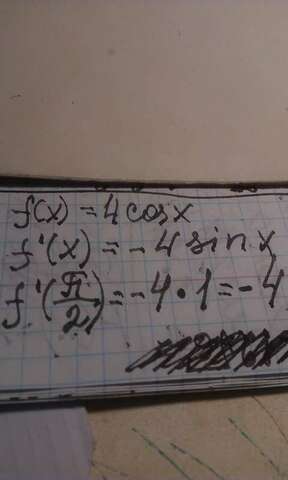 f(x) = 4 cos x
f'(x) = - 4 sin x
f'(π/2) = - 4 • 1 = - 4